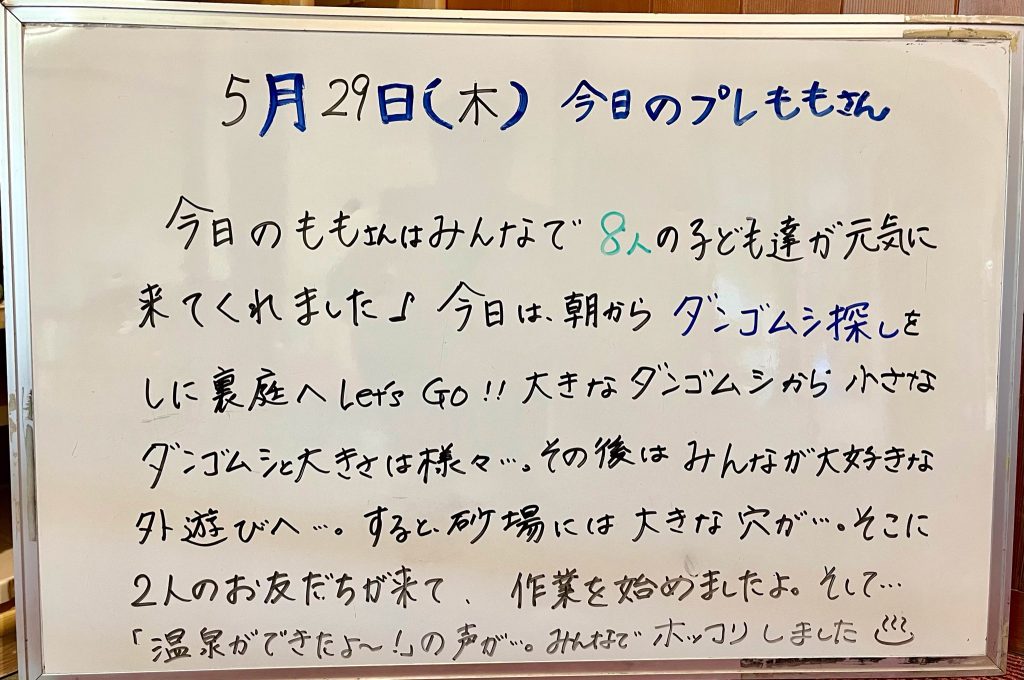 5月29日(木) 今日のプレももさん
今日のももさんはみんなで 8人の子ども達が元気に
来てくれました♪ 今日は、朝から ダンゴムシ探しを
しに裏庭へ Let's Go!! 大きなダンゴムシから 小さな
ダンゴムシと大きさは様々…。その後は みんなが大好きな
外遊びへ…。すると、砂場には 大きな 穴が…。そこに
2人のお友だちが来て、 作業を始めましたよ。そして…
「温泉ができたよ〜!」の声が…。みんなで ホッコリ しました ♨